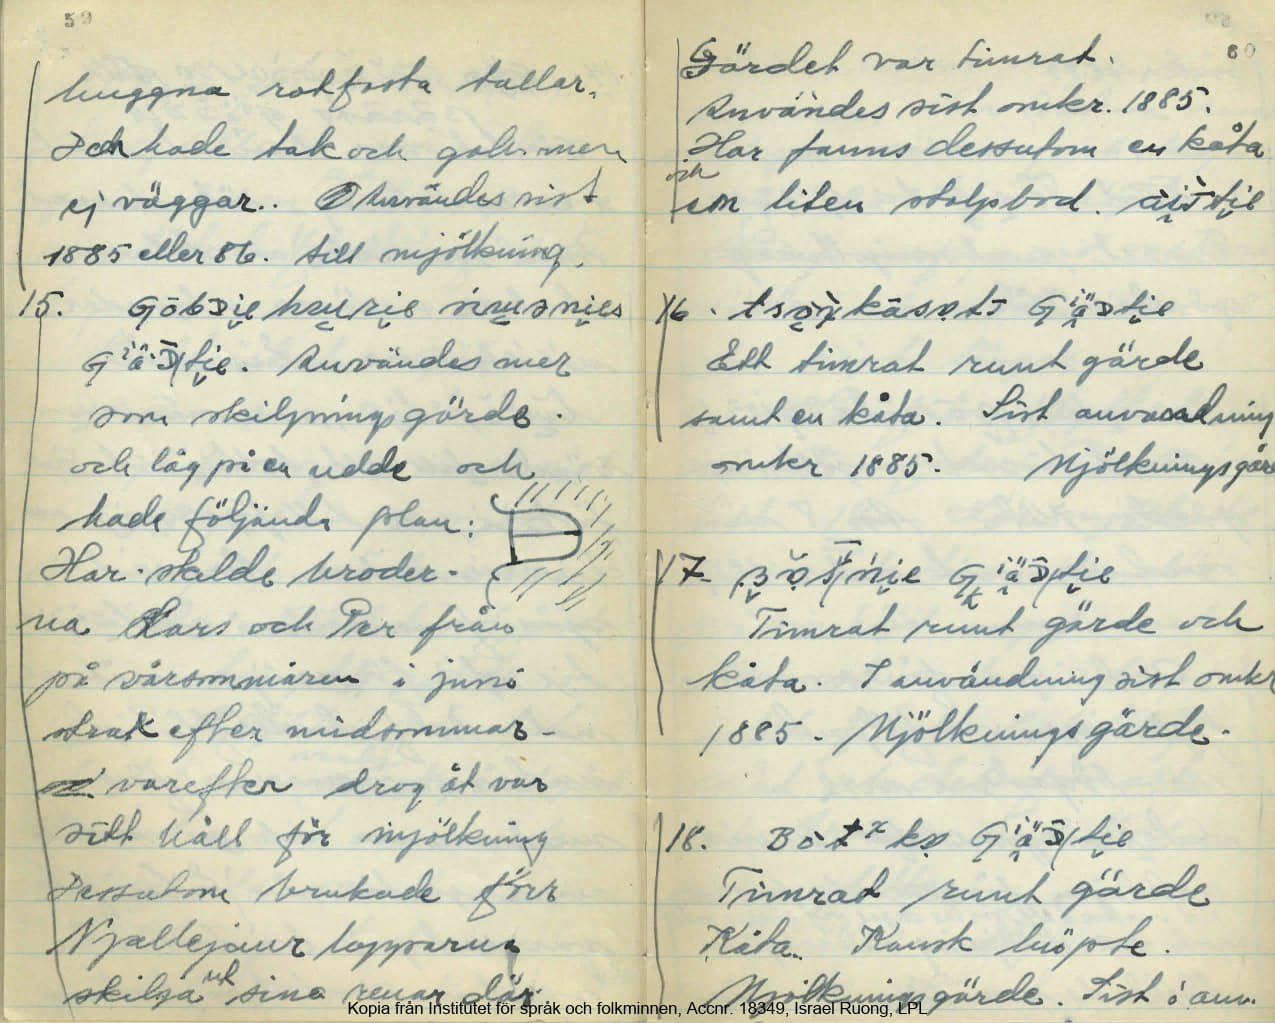 59
huggna rotfasta tallar.
Den hade tak och golv men
ej väggar.. Användes sist
1885 eller 86. till mjölkning.
15.
Användes mer
som skiljningsgärde.
och låg på en udde och
hade följande plan:
Här skilde bröder-
na Lars och Per från
på vårsommaren i juni
strax efter midsommar-
varefter drog åt var
sitt håll för mjölkning
Dessutom brukade förr
Njallejaur lapparna
skilja ut sina renar där.
60
Gärdet var timrat.
Användes sist omkr. 1885.
Här fanns dessutom en kåta
och
en liten stolpbod.
16.
Ett timrat runt gärde
samt en kåta. Sist användning
omkr 1885. Mjölkningsgärde
17.
Timrat runt gärde och
kåta. I användning sist omkr
1885. Mjölkningsgärde.
18.
Timrat runt gärde
Kåta.
Mjölkningsgärde. Sist i anv.
Kopia från Institutet för språk och folkminnen, Accnr. 18349, Israel Ruong, LPL